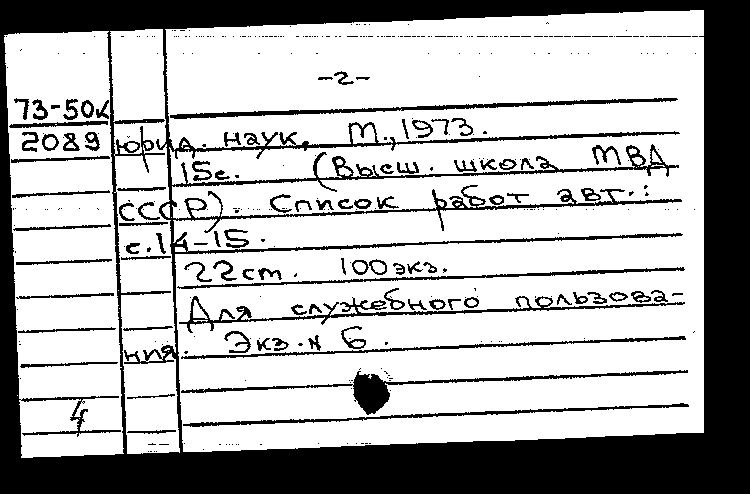 -2-
73-50к
2089 юрид. наук. М., 1973.
15с. (Высш. школа МВД
СССР). Список работ авт.:
с.14-15.
22см. 100экз.
Для служебного пользова-
ния. Экз. N 6.
4